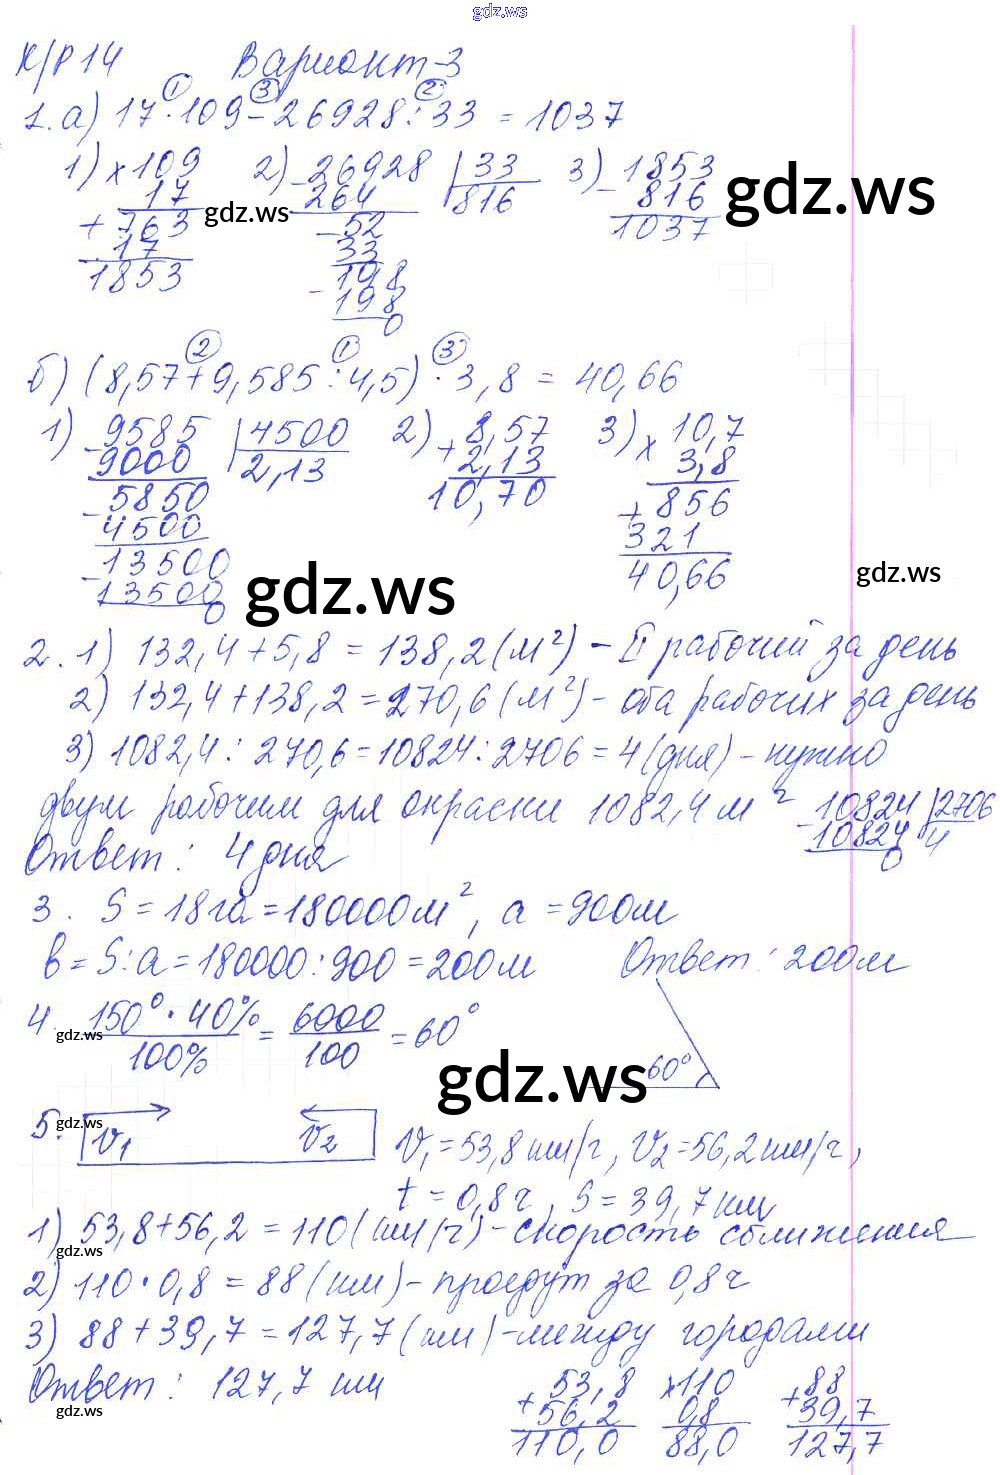 gdz.ws
К/Р 14 Вариант-3
① ③ ②
1. а) 17 · 109 - 26928 : 33 = 1037
1) × 109 2) - 26928 | 33 3) - 1853
17 264 816 816
+ 763 - 52 1037
17 33
1853 - 198
198
0
gdz.ws gdz.ws
② ① ③
б) (8,57 + 9,585 : 4,5) · 3,8 = 40,66
1) - 9585 | 4500 2) + 8,57 3) × 10,7
9000 2,13 2,13 3,8
- 5850 10,70 + 856
4500 321
- 13500 40,66
13500
0
gdz.ws gdz.ws
2. 1) 132,4 + 5,8 = 138,2 (м²) - II рабочий за день
2) 132,4 + 138,2 = 270,6 (м²) - оба рабочих за день
3) 1082,4 : 270,6 = 10824 : 2706 = 4 (дня) - нужно
двум рабочим для окраски 1082,4 м² - 10824 | 2706
10824 4
0
Ответ: 4 дня
3. S = 18 га = 180000 м², a = 900 м
b = S : a = 180000 : 900 = 200 м Ответ: 200 м
4. 150° · 40% / 100% = 6000 / 100 = 60°
60°
gdz.ws gdz.ws
5. V₁ V₂ V₁ = 53,8 км/ч, V₂ = 56,2 км/ч,
gdz.ws
t = 0,8 ч, S = 39,7 км
1) 53,8 + 56,2 = 110 (км/ч) - скорость сближения
gdz.ws
2) 110 · 0,8 = 88 (км) - проедут за 0,8 ч
3) 88 + 39,7 = 127,7 (км) - между городами
Ответ: 127,7 км
gdz.ws
+ 53,8 × 110 + 88
56,2 0,8 39,7
110,0 88,0 127,7